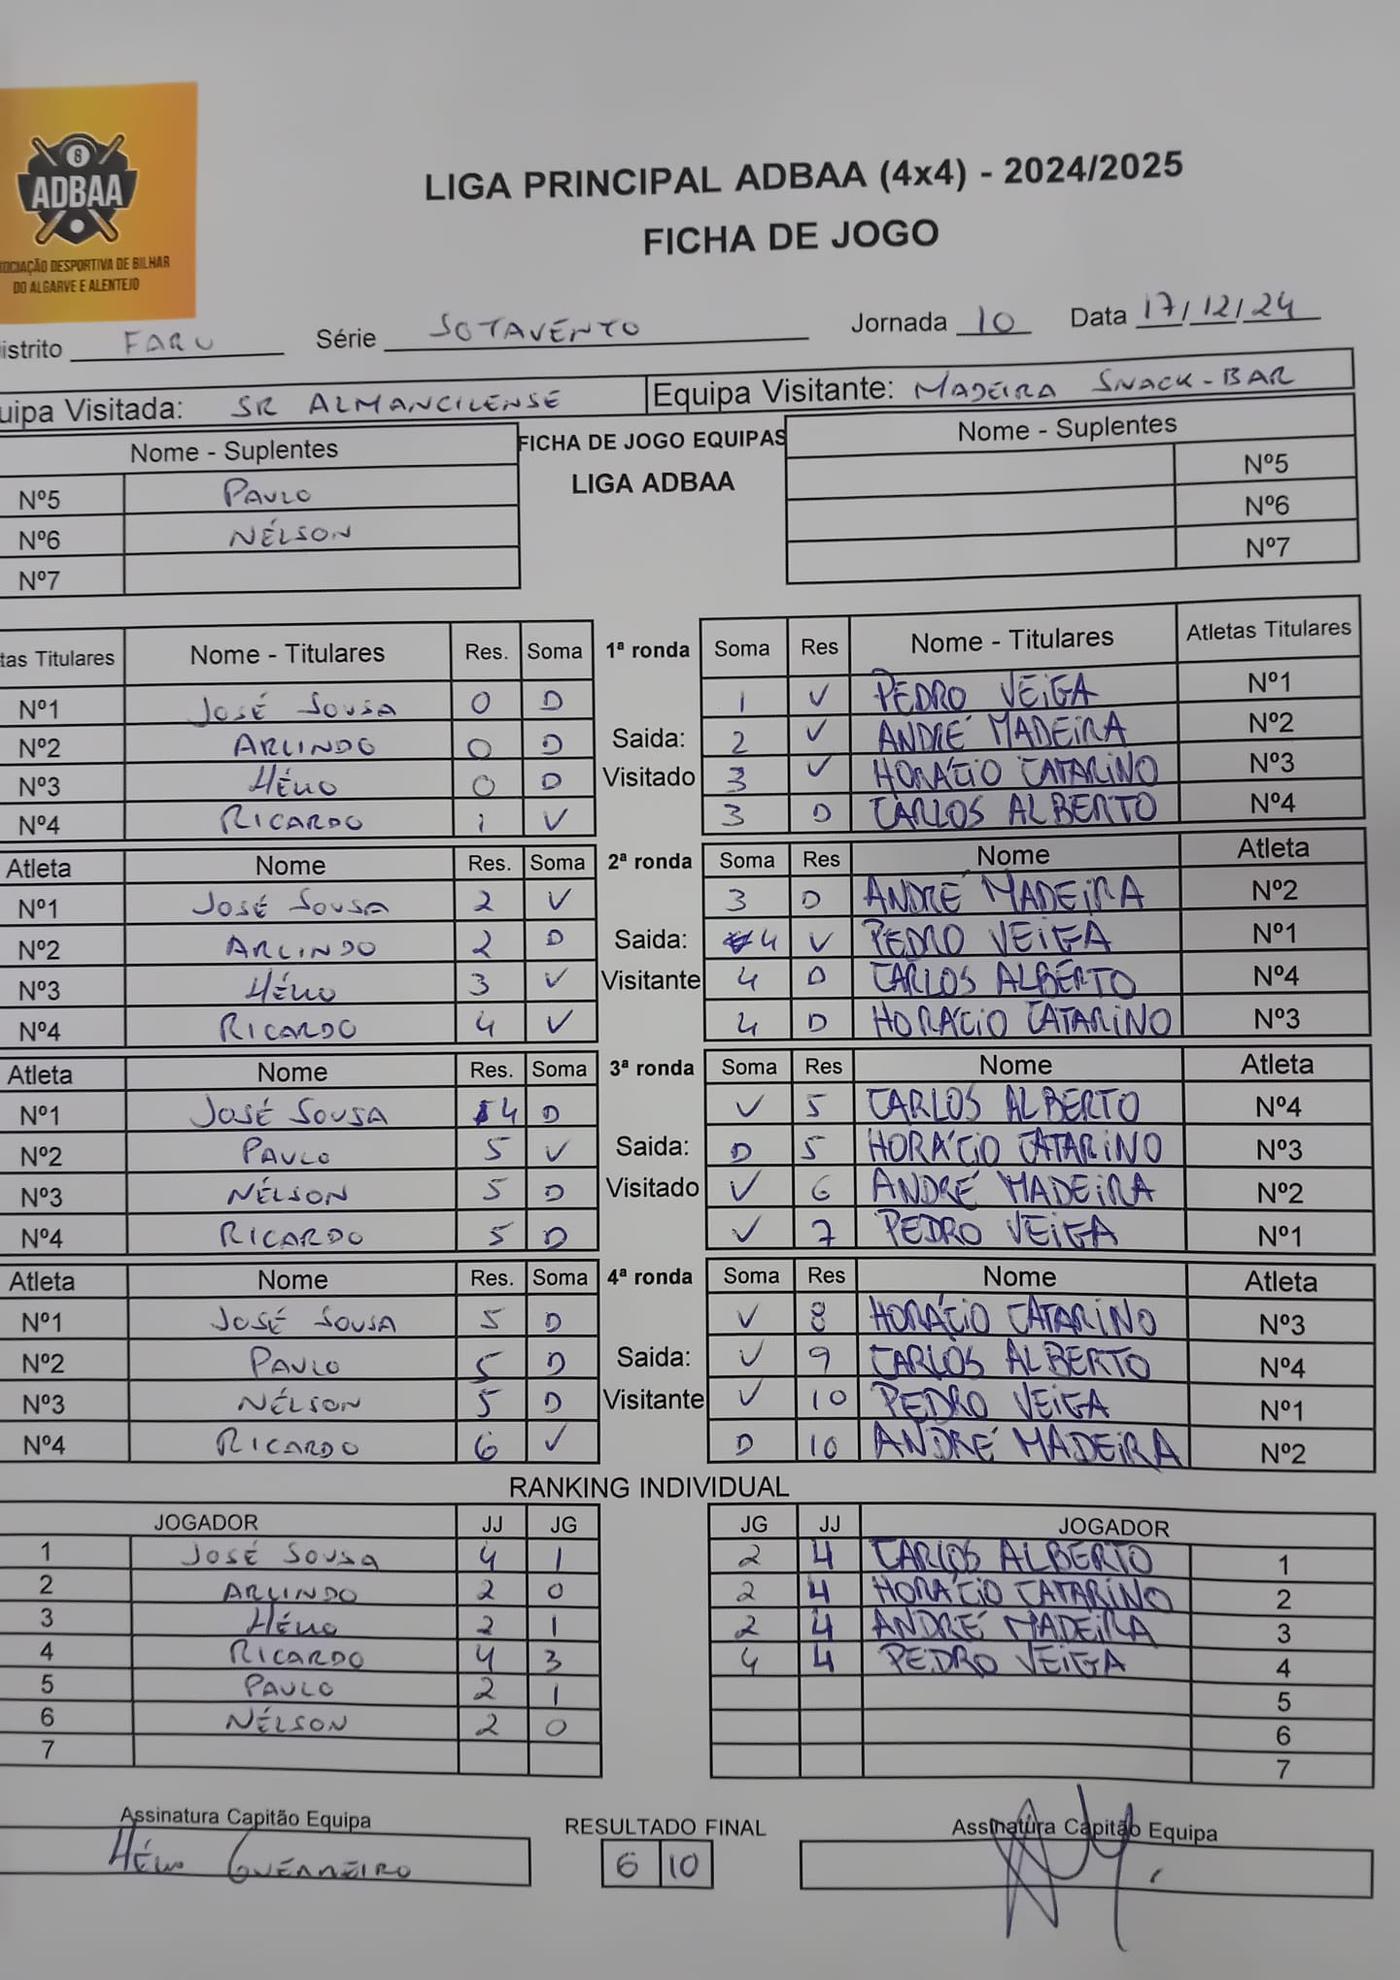 8
ADBAA
OCIAÇÃO DESPORTIVA DE BILHAR
DO ALGARVE E ALENTEJO
LIGA PRINCIPAL ADBAA (4x4) - 2024/2025
FICHA DE JOGO
istrito FARO Série SOTAVENTO Jornada 10 Data 17/12/24
uipa Visitada: SR ALMANCILENSE Equipa Visitante: MADEIRA SNACK-BAR
Nome - Suplentes FICHA DE JOGO EQUIPAS Nome - Suplentes
LIGA ADBAA
Nº5 PAULO Nº5
Nº6 NÉLSON Nº6
Nº7 Nº7
tas Titulares Nome - Titulares Res. Soma 1ª ronda Soma Res Nome - Titulares Atletas Titulares
Nº1 JOSÉ SOUSA 0 D 1 V PEDRO VEIGA Nº1
Nº2 ARLINDO 0 D Saida: 2 V ANDRÉ MADEIRA Nº2
Nº3 HÉLIO 0 D Visitado 3 V HORÁCIO CATARINO Nº3
Nº4 RICARDO 1 V 3 D CARLOS ALBERTO Nº4
Atleta Nome Res. Soma 2ª ronda Soma Res Nome Atleta
Nº1 JOSÉ SOUSA 2 V 3 D ANDRÉ MADEIRA Nº2
Nº2 ARLINDO 2 D Saida: 4 V PEDRO VEIGA Nº1
Nº3 HÉLIO 3 V Visitante 4 D CARLOS ALBERTO Nº4
Nº4 RICARDO 4 V 4 D HORÁCIO CATARINO Nº3
Atleta Nome Res. Soma 3ª ronda Soma Res Nome Atleta
Nº1 JOSÉ SOUSA 4 D V 5 CARLOS ALBERTO Nº4
Nº2 PAULO 5 V Saida: D 5 HORÁCIO CATARINO Nº3
Nº3 NÉLSON 5 D Visitado V 6 ANDRÉ MADEIRA Nº2
Nº4 RICARDO 5 D V 7 PEDRO VEIGA Nº1
Atleta Nome Res. Soma 4ª ronda Soma Res Nome Atleta
Nº1 JOSÉ SOUSA 5 D V 8 HORÁCIO CATARINO Nº3
Nº2 PAULO 5 D Saida: V 9 CARLOS ALBERTO Nº4
Nº3 NÉLSON 5 D Visitante V 10 PEDRO VEIGA Nº1
Nº4 RICARDO 6 V D 10 ANDRÉ MADEIRA Nº2
RANKING INDIVIDUAL
JOGADOR JJ JG JG JJ JOGADOR
1 JOSÉ SOUSA 4 1 2 4 CARLOS ALBERTO 1
2 ARLINDO 2 0 2 4 HORÁCIO CATARINO 2
3 HÉLIO 2 1 2 4 ANDRÉ MADEIRA 3
4 RICARDO 4 3 4 4 PEDRO VEIGA 4
5 PAULO 2 1 5
6 NÉLSON 2 0 6
7 7
Assinatura Capitão Equipa RESULTADO FINAL Assinatura Capitão Equipa
HÉLIO GUERREIRO 6 10